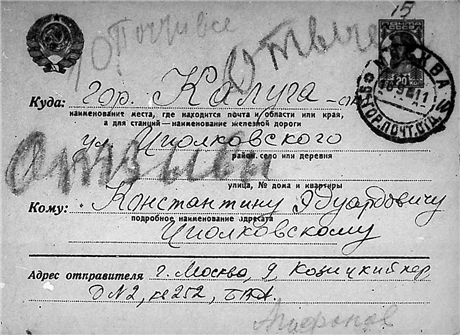 15
10 Почти все
Отвыч
ПОЧТА СССР
20
МОСКВА
ГОР. ПОЧТ. ОТД.
Куда: гор. Калуга
наименование места, где находится почта и области или края,
а для станций — наименование железной дороги
ул. Циолковского
район, село или деревня
Отзывы
улица, № дома и квартиры
Кому: Константину Эдуардовичу
подробное наименование адресата
Циолковскому
Адрес отправителя г. Москва, 9, Козицкий пер.
Д N2, кв 252,
Агафонов